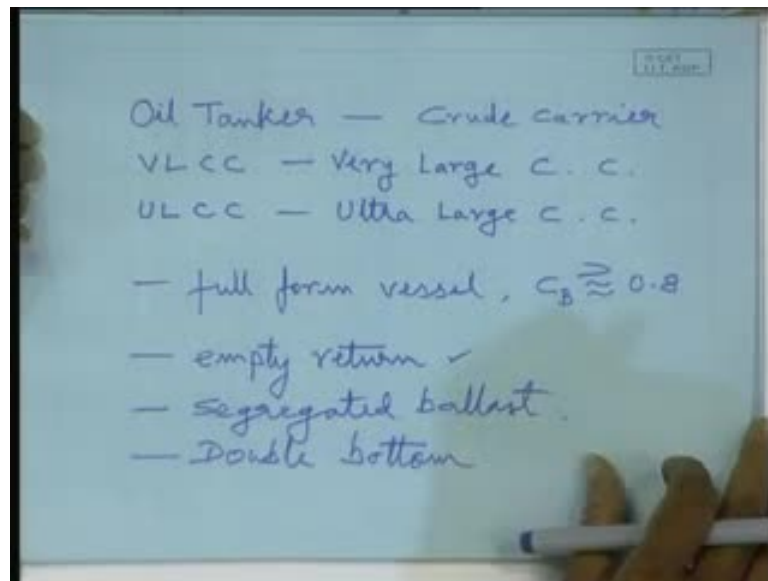 Oil Tanker — Crude carrier
VLCC — Very Large C. C.
ULCC — Ultra Large C. C.
— full form vessel, C_B ⪆ 0.8
— empty return ✓
— segregated ballast.
— Double bottom